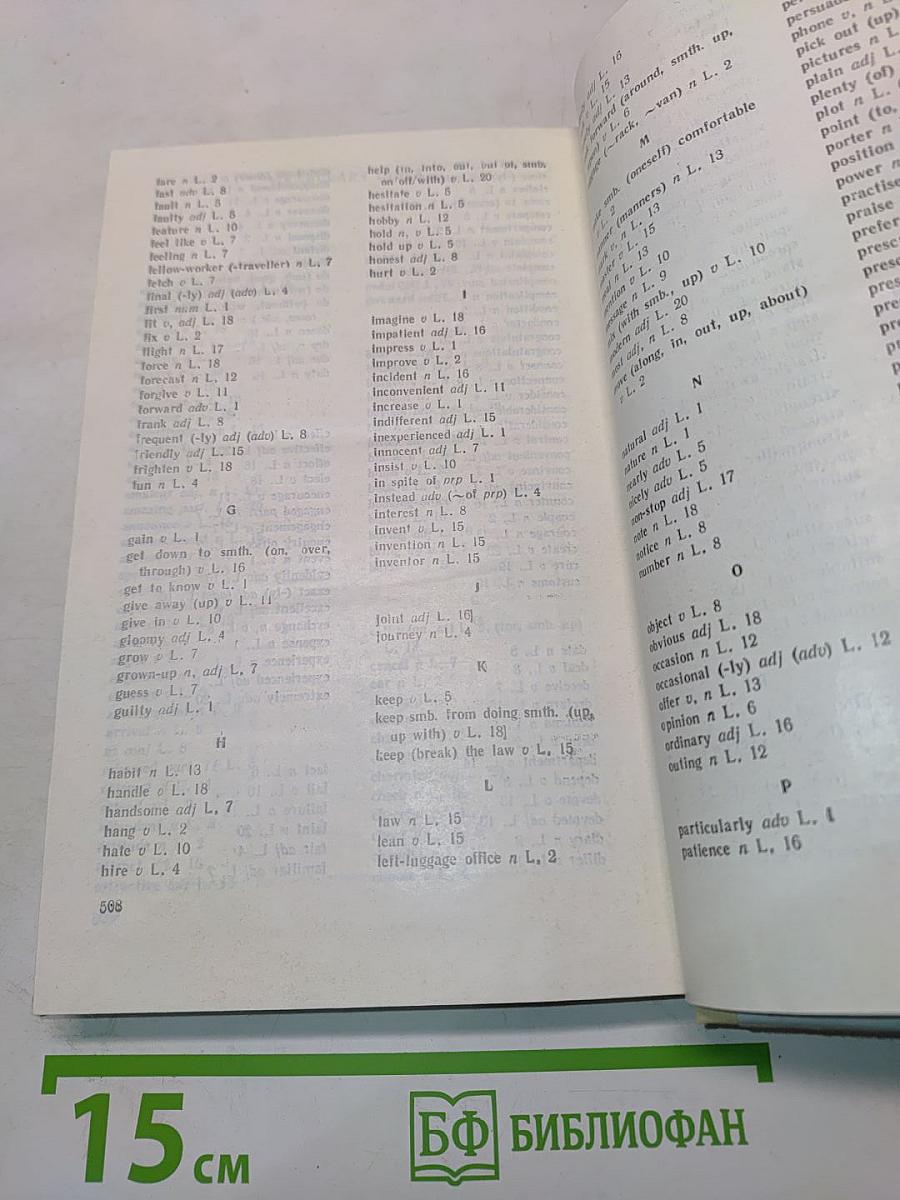 fare n L. 2
fast adv L. 8
fault n L. 5
faulty adj L. 8
feature n L. 10
feel like v L. 7
feeling n L. 7
fellow-worker (-traveller) n L. 7
fetch v L. 7
final (-ly) adj (adv) L. 4
first num L. 1
fit v, adj L. 18
fix v L. 2
flight n L. 17
force n L. 18
forecast n L. 12
forgive v L. 11
forward adv L. 1
frank adj L. 8
frequent (-ly) adj (adv) L. 8
friendly adj L. 15
frighten v L. 18
fun n L. 4
G
gain v L. 1
get down to smth. (on, over,
through) v L. 16
get to know v L. 1
give away (up) v L. 11
give in v L. 10
gloomy adj L. 4
grow v L. 7
grown-up n, adj L. 7
guess v L. 7
guilty adj L. 1
H
habit n L. 13
handle v L. 18
handsome adj L. 7
hang v L. 2
hate v L. 10
hire v L. 4
508
help (in, into, out, out of, smb.
on/off/with) v L. 20
hesitate v L. 5
hesitation n L. 5
hobby n L. 12
hold n, v L. 5
hold up v L. 5
honest adj L. 8
hurt v L. 2
I
imagine v L. 18
impatient adj L. 16
impress v L. 1
improve v L. 2
incident n L. 16
inconvenient adj L. 11
increase v L. 1
indifferent adj L. 15
inexperienced adj L. 1
innocent adj L. 7
insist v L. 10
in spite of prp L. 1
instead adv (~of prp) L. 4
interest n L. 8
invent v L. 15
invention n L. 15
inventor n L. 15
J
joint adj L. 16]
journey n L. 4
K
keep v L. 5
keep smb. from doing smth. (up,
up with) v L. 18]
keep (break) the law v L. 15
L
law n L. 15
lean v L. 15
left-luggage office n L. 2
adj L. 16
L. 15
adj L. 13
forward (around, smth. up,
v L. 6
(~rack, ~van) n L. 2
M
smb. (oneself) comfortable
L. 2
(manners) n L. 13
v, n L. 13
v L. 15
n L. 13
mention v L. 10
message n L. 9
mix (with smb., up) v L. 10
modern adj L. 20
most adj, n L. 8
move (along, in, out, up, about)
v L. 2
N
natural adj L. 1
nature n L. 1
nearly adv L. 5
nicely adv L. 5
non-stop adj L. 17
note n L. 18
notice n L. 8
number n L. 8
O
object v L. 8
obvious adj L. 18
occasion n L. 12
occasional (-ly) adj (adv) L. 12
offer v, n L. 13
opinion n L. 6
ordinary adj L. 16
outing n L. 12
P
particularly adv L. 1
patience n L. 16
phone v, n
pick out (up)
pictures n L.
plain adj L.
plenty (of)
plot n L.
point (to,
porter n
position
power n
practise
praise
prefer
15 см
БФ БИБЛИОФАН